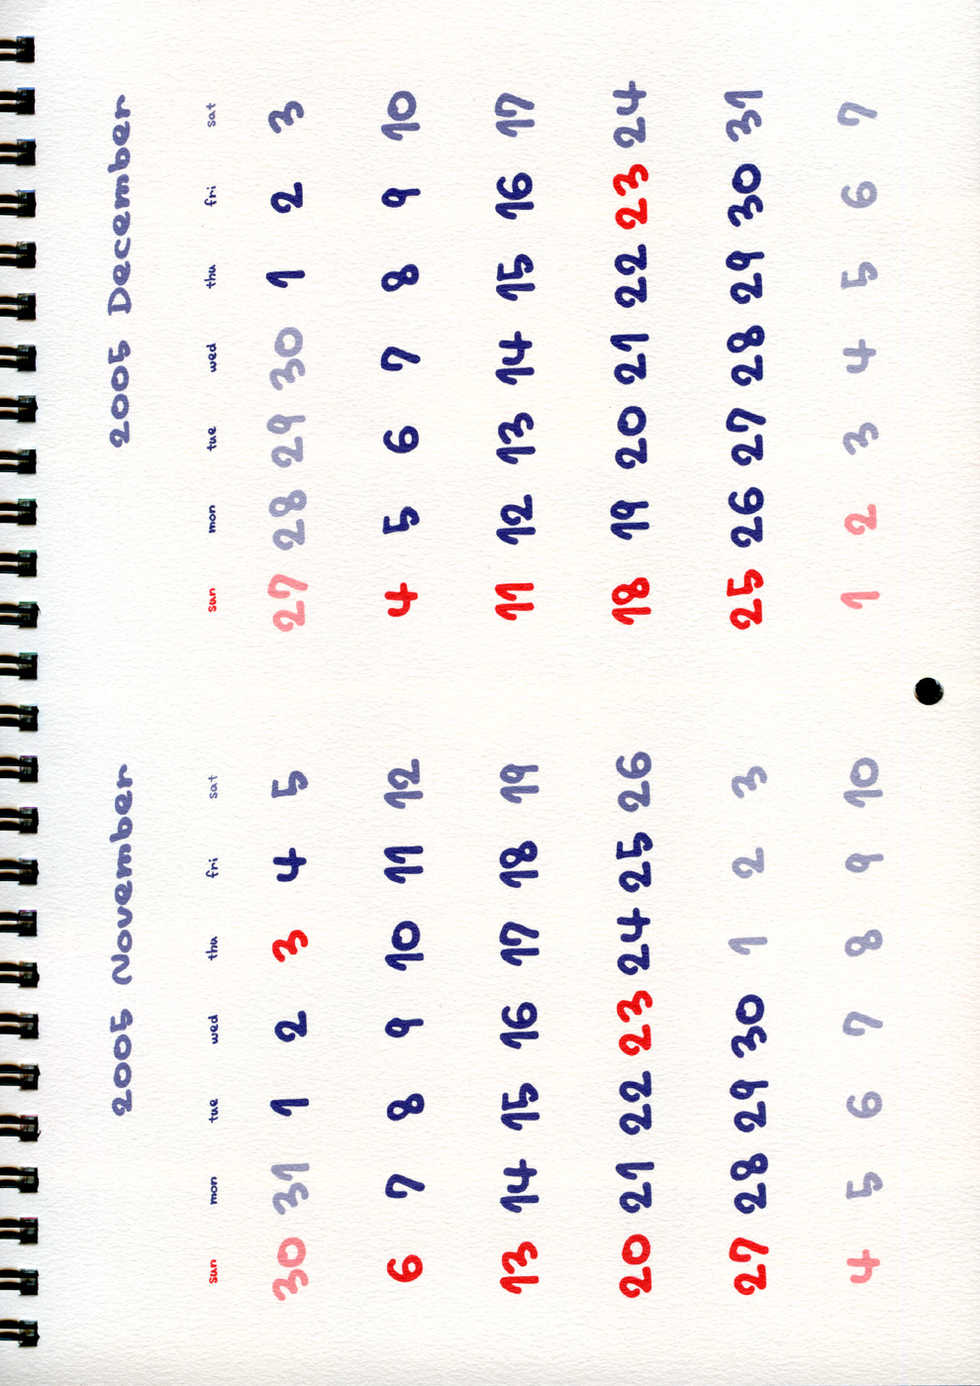 2005 November
sun mon tue wed thu fri sat
30 31 1 2 3 4 5
6 7 8 9 10 11 12
13 14 15 16 17 18 19
20 21 22 23 24 25 26
27 28 29 30 1 2 3
4 5 6 7 8 9 10
2005 December
sun mon tue wed thu fri sat
27 28 29 30 1 2 3
4 5 6 7 8 9 10
11 12 13 14 15 16 17
18 19 20 21 22 23 24
25 26 27 28 29 30 31
1 2 3 4 5 6 7